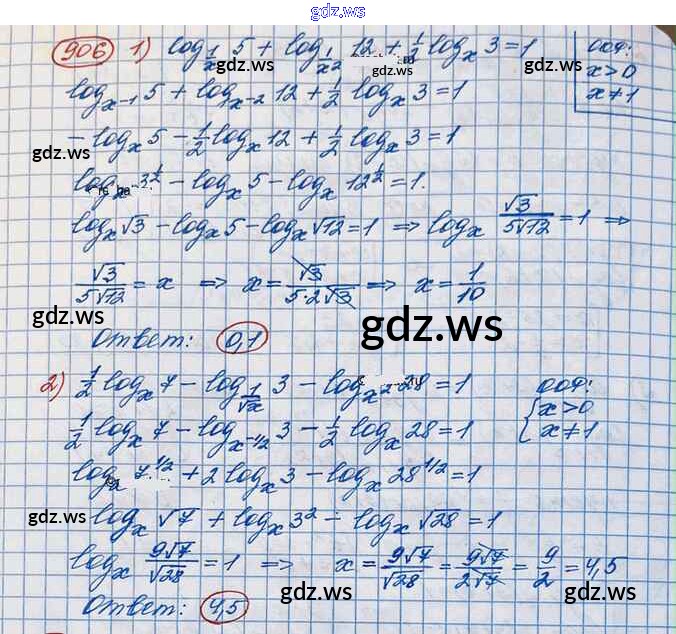 gdz.ws
906 1) log_{1/x} 5 + log_{1/x²} 12 + 1/2 log_x 3 = 1
ООФ:
x > 0
x ≠ 1
gdz.ws gdz.ws gdz.ws
log_{x⁻¹} 5 + log_{x⁻²} 12 + 1/2 log_x 3 = 1
- log_x 5 - 1/2 log_x 12 + 1/2 log_x 3 = 1
gdz.ws
log_x 3^{1/2} - log_x 5 - log_x 12^{1/2} = 1.
log_x √3 - log_x 5 - log_x √12 = 1 ⇒ log_x √3/(5√12) = 1 ⇒
gdz.ws gdz.ws
√3/(5√12) = x ⇒ x = √3/(5·2√3) ⇒ x = 1/10
gdz.ws gdz.ws
Ответ: 0,1
2) 1/2 log_x 7 - log_{1/√x} 3 - log_{x²} 28 = 1
ООФ:
{ x > 0
x ≠ 1
1/2 log_x 7 - log_{x^{-1/2}} 3 - 1/2 log_x 28 = 1
log_x 7^{1/2} + 2 log_x 3 - log_x 28^{1/2} = 1
gdz.ws
log_x √7 + log_x 3² - log_x √28 = 1
log_x 9√7/√28 = 1 ⇒ x = 9√7/√28 = 9√7/(2√7) = 9/2 = 4,5
Ответ: 4,5
gdz.ws gdz.ws